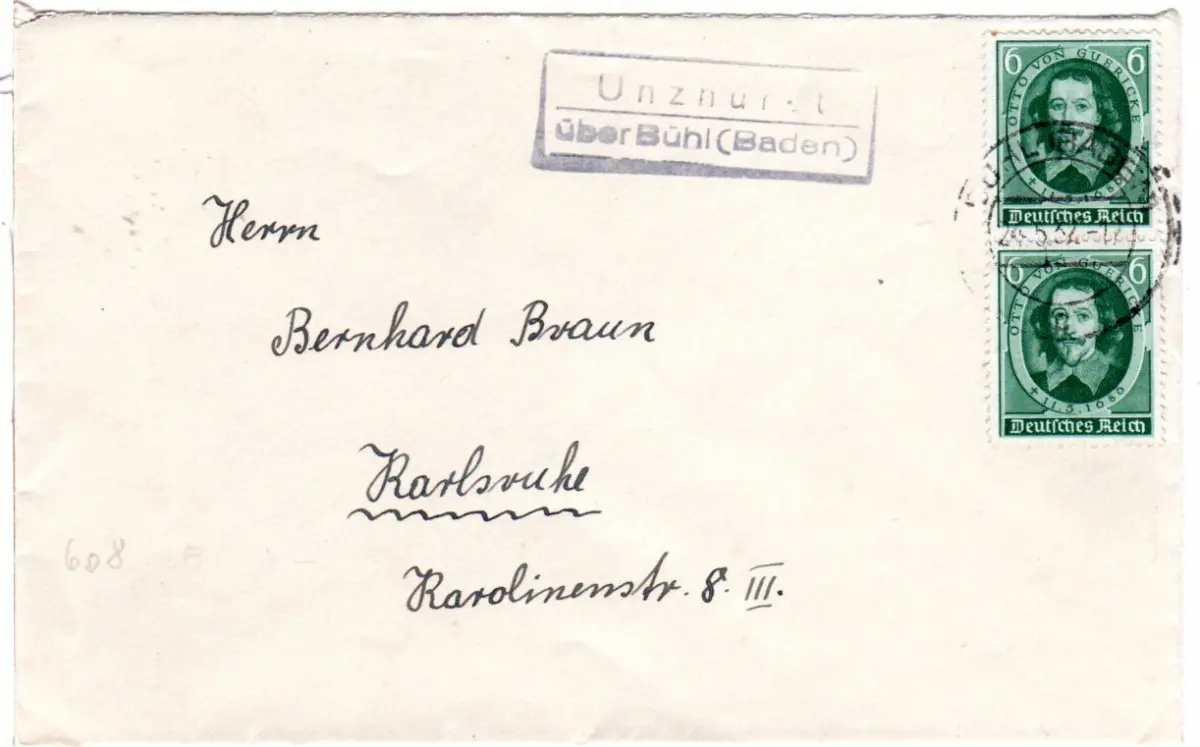 Unzhurst
über Bühl (Baden)
6 6
OTTO VON GUERICKE
+ 11.5.1686
Deutsches Reich
6 6
OTTO VON GUERICKE
+ 11.5.1686
Deutsches Reich
Herrn
Bernhard Braun
Karlsruhe
Karolinenstr. 8. III.
608